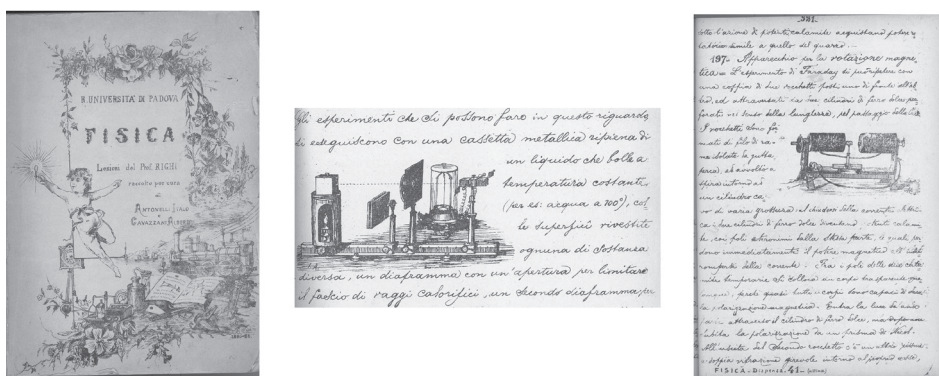 R. UNIVERSITÀ DI PADOVA
FISICA
Lezioni del Prof. RIGHI
raccolte per cura
di
ANTONELLI ITALO
e
CAVAZZANI ALBERTO
Gli esperimenti che si possono fare in questo riguardo
si eseguiscono con una cassetta metallica ripiena di
un liquido che bolle a
temperatura costante
(per es: acqua a 100°), col-
le superficie rivestite
ognuna di sostanza
diversa, un diaframma con un'apertura per limitare
il fascio di raggi calorifici, un secondo diaframma per
321
sotto l'azione di potenti calamite acquistano potere
rotatorio simile a quello del quarzo...
197. Apparecchio per la rotazione magne-
tica. L'esperimento di Faraday si può ripetere con
una coppia di due rocchetti posti uno di fronte all'al-
tro, ed attraversati da due cilindri di ferro dolce per-
forati nel senso della lunghezza, pel passaggio della luce
I rocchetti sono for-
mati di filo di ra-
me isolato la gutta
perca, ed avvolto a
spira intorno ad
un cilindro ca-
vo di varia grossezza: al chiudersi della corrente elettri-
ca i due cilindri di ferro dolce diventano calami-
te, coi poli eteronimi dalla stessa parte, i quali per-
dono immediatamente il potere magnetico all'
rompersi della corrente. Fra i poli delle due cala-
mite temporarie si colloca un corpo trasparente qua-
lunque, perché quasi tutti i corpi sono capaci di
la polarizzazione magnetica. Entra la luce
attraverso il cilindro di ferro dolce, ma dopo aver
subita la polarizzazione da un prisma di Nicol.
All'uscita del secondo rocchetto c'è un altro prisma
a doppia rifrazione girevole intorno al proprio asse,
FISICA - Dispensa 41